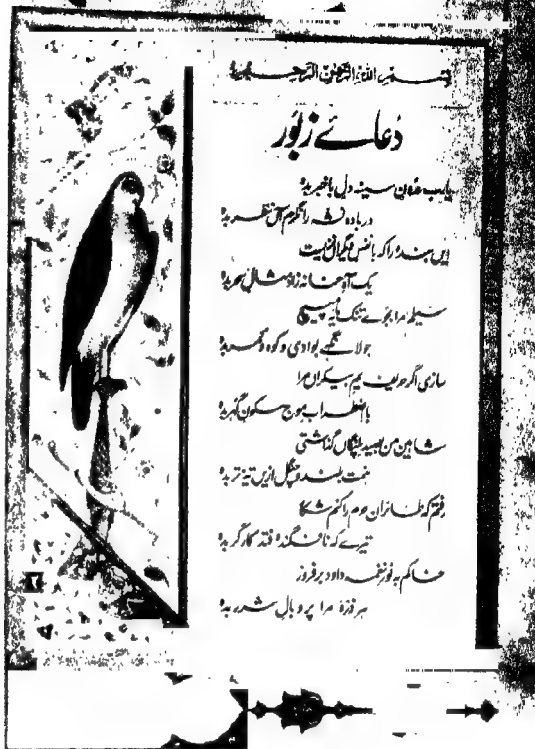 بسم الله الرحمن الرحيم
دُعائے زبُور
یارب درون سینه دل باخبر بده
در باده نشه را نگرم آں نظر بده
ایں بنده را که بانفس دیگراں نزیست
یک آه خانه زاد مثال سحر بده
سیلم مرا بجوئے تنک مایۂ مپیچ
جولانگہے بوادی و کوه و کمر بده
سازی اگر حریف یم بیکراں مرا
با اضطراب موج سکون گہر بده
شاہین من بصید پلنگاں گذاشتی
ہمت بلند و چنگل ازیں تیز تر بده
رفتم که طائران حرم را کنم شکار
تیرے که نافگنده فتد کارگر بده
خاکم به نور نغمۂ داؤد بر فروز
ہر ذرّۂ مرا پر و بال شرر بده